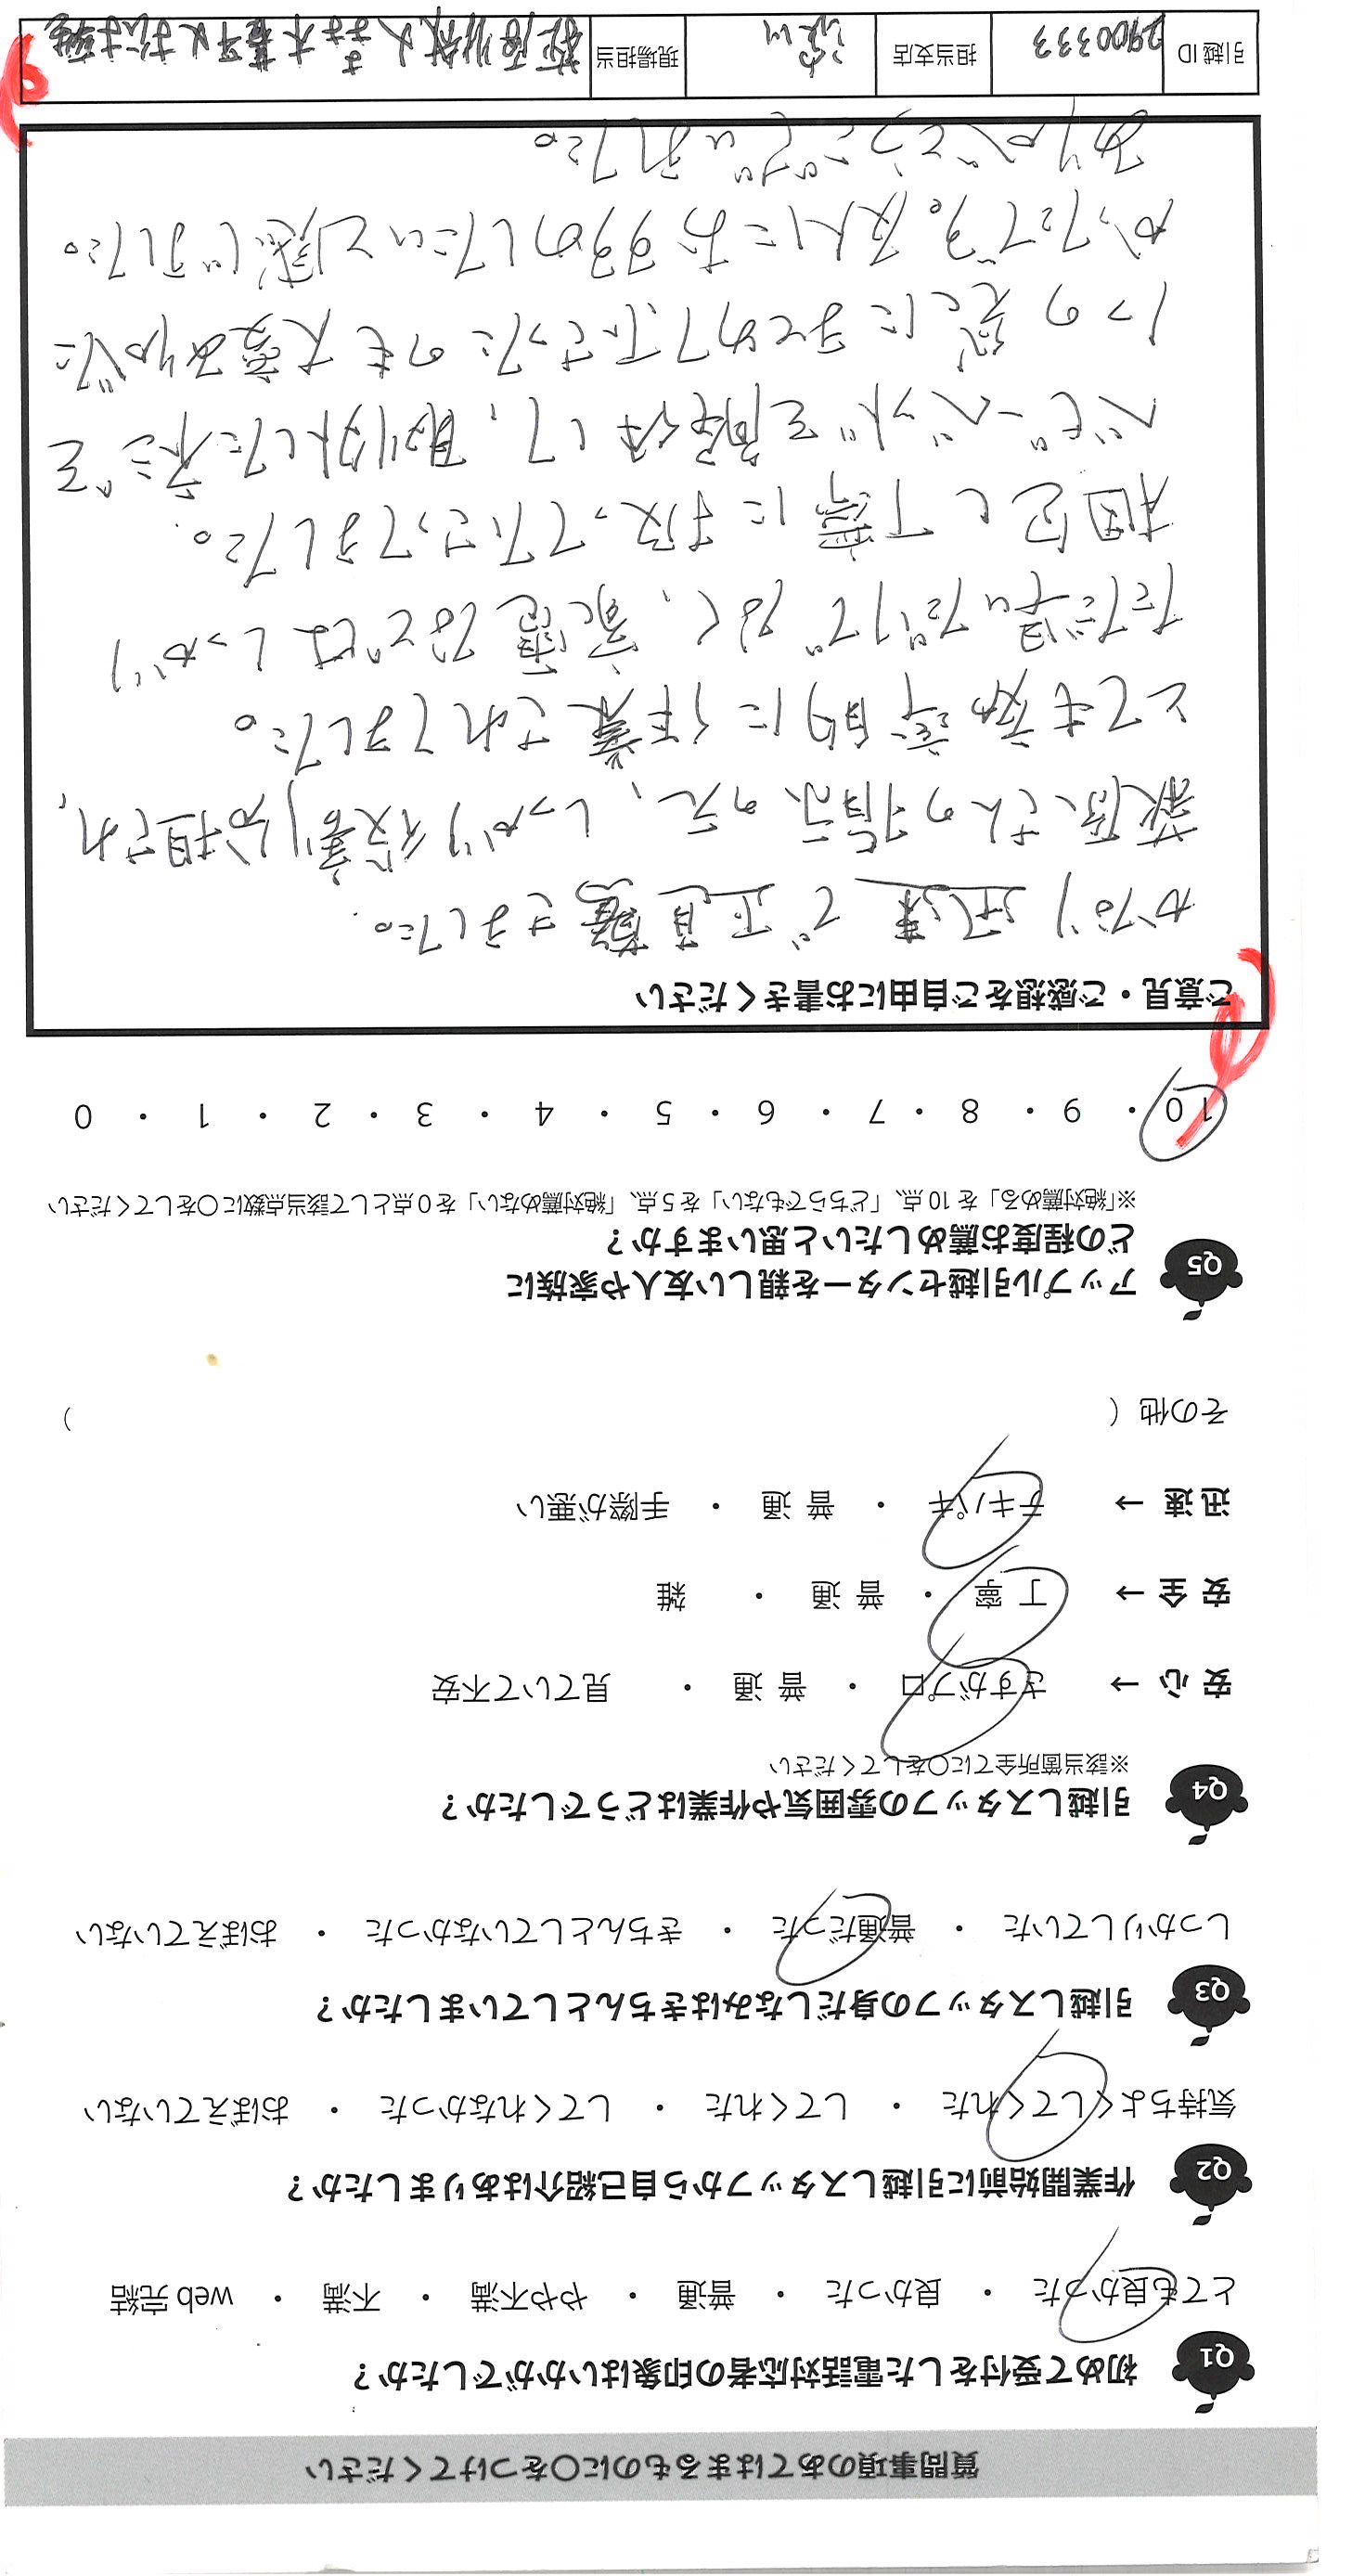 質問事項のあてはまるものに○をつけてください
Q1 初めて受付をした電話対応者の印象はいかがでしたか？
とても良かった ・ 良かった ・ 普通 ・ やや不満 ・ 不満 ・ web 完結
Q2 作業開始前に引越しスタッフから自己紹介はありましたか？
気持ちよくしてくれた ・ してくれた ・ してくれなかった ・ おぼえていない
Q3 引越しスタッフの身だしなみはきちんとしていましたか？
しっかりしていた ・ 普通だった ・ きちんとしていなかった ・ おぼえていない
Q4 引越しスタッフの雰囲気や作業はどうでしたか？
※該当箇所全てに○をしてください
安心 → さすがプロ ・ 普通 ・ 見ていて不安
安全 → 丁寧 ・ 普通 ・ 雑
迅速 → テキパキ ・ 普通 ・ 手際が悪い
その他（ ）
Q5 アップル引越センターを親しい友人や家族に
どの程度お薦めしたいと思いますか？
※「絶対薦める」を 10 点、「どちらでもない」を 5 点、「絶対薦めない」を 0 点として該当点数に○をしてください
10 ・ 9 ・ 8 ・ 7 ・ 6 ・ 5 ・ 4 ・ 3 ・ 2 ・ 1 ・ 0
ご意見・ご感想をご自由にお書きください
かなり迅速で正直驚きました。
萩原さんの指示の元、しっかり役割分担され、
とても効率的に作業されてました。
ただ早いだけでなく、家電などはしっかり
梱包し丁寧に扱って下さってました。
ベビーベッドを解体して、取り外したネジを
1つの袋にまとめて下さったのも大変ありがた
かったです。友人におすすめしたいと感じました。
ありがとうございました。
引越 ID 2900333 担当支店 現場担当